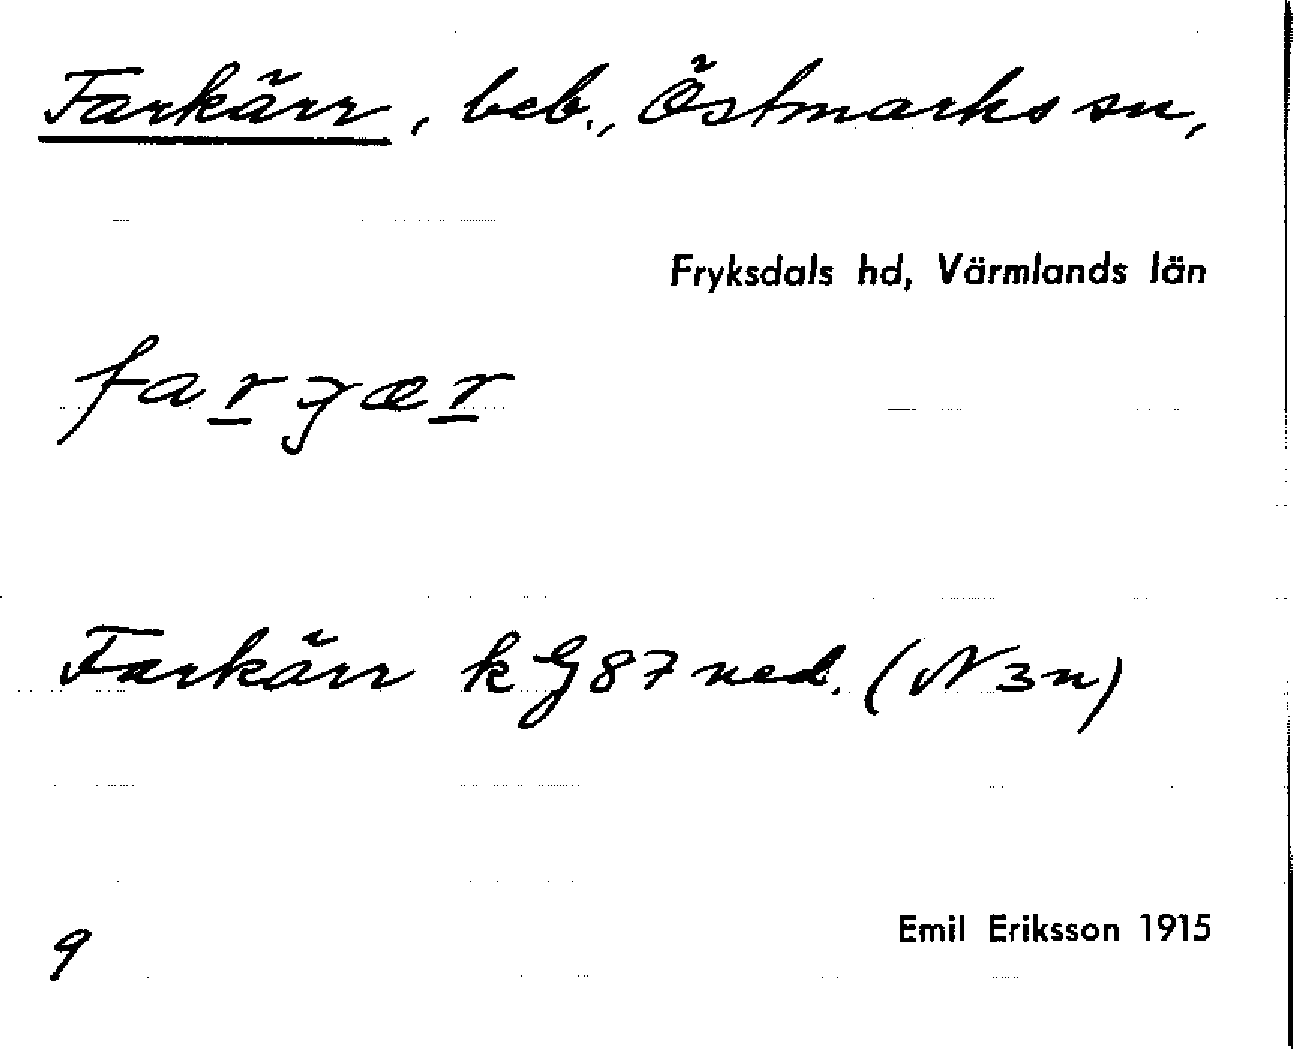 Farkärr, beb., Östmarks sn,
Fryksdals hd, Värmlands län
farꞬær
Farkärr k G 87 ned. (N 3 n)
9
Emil Eriksson 1915